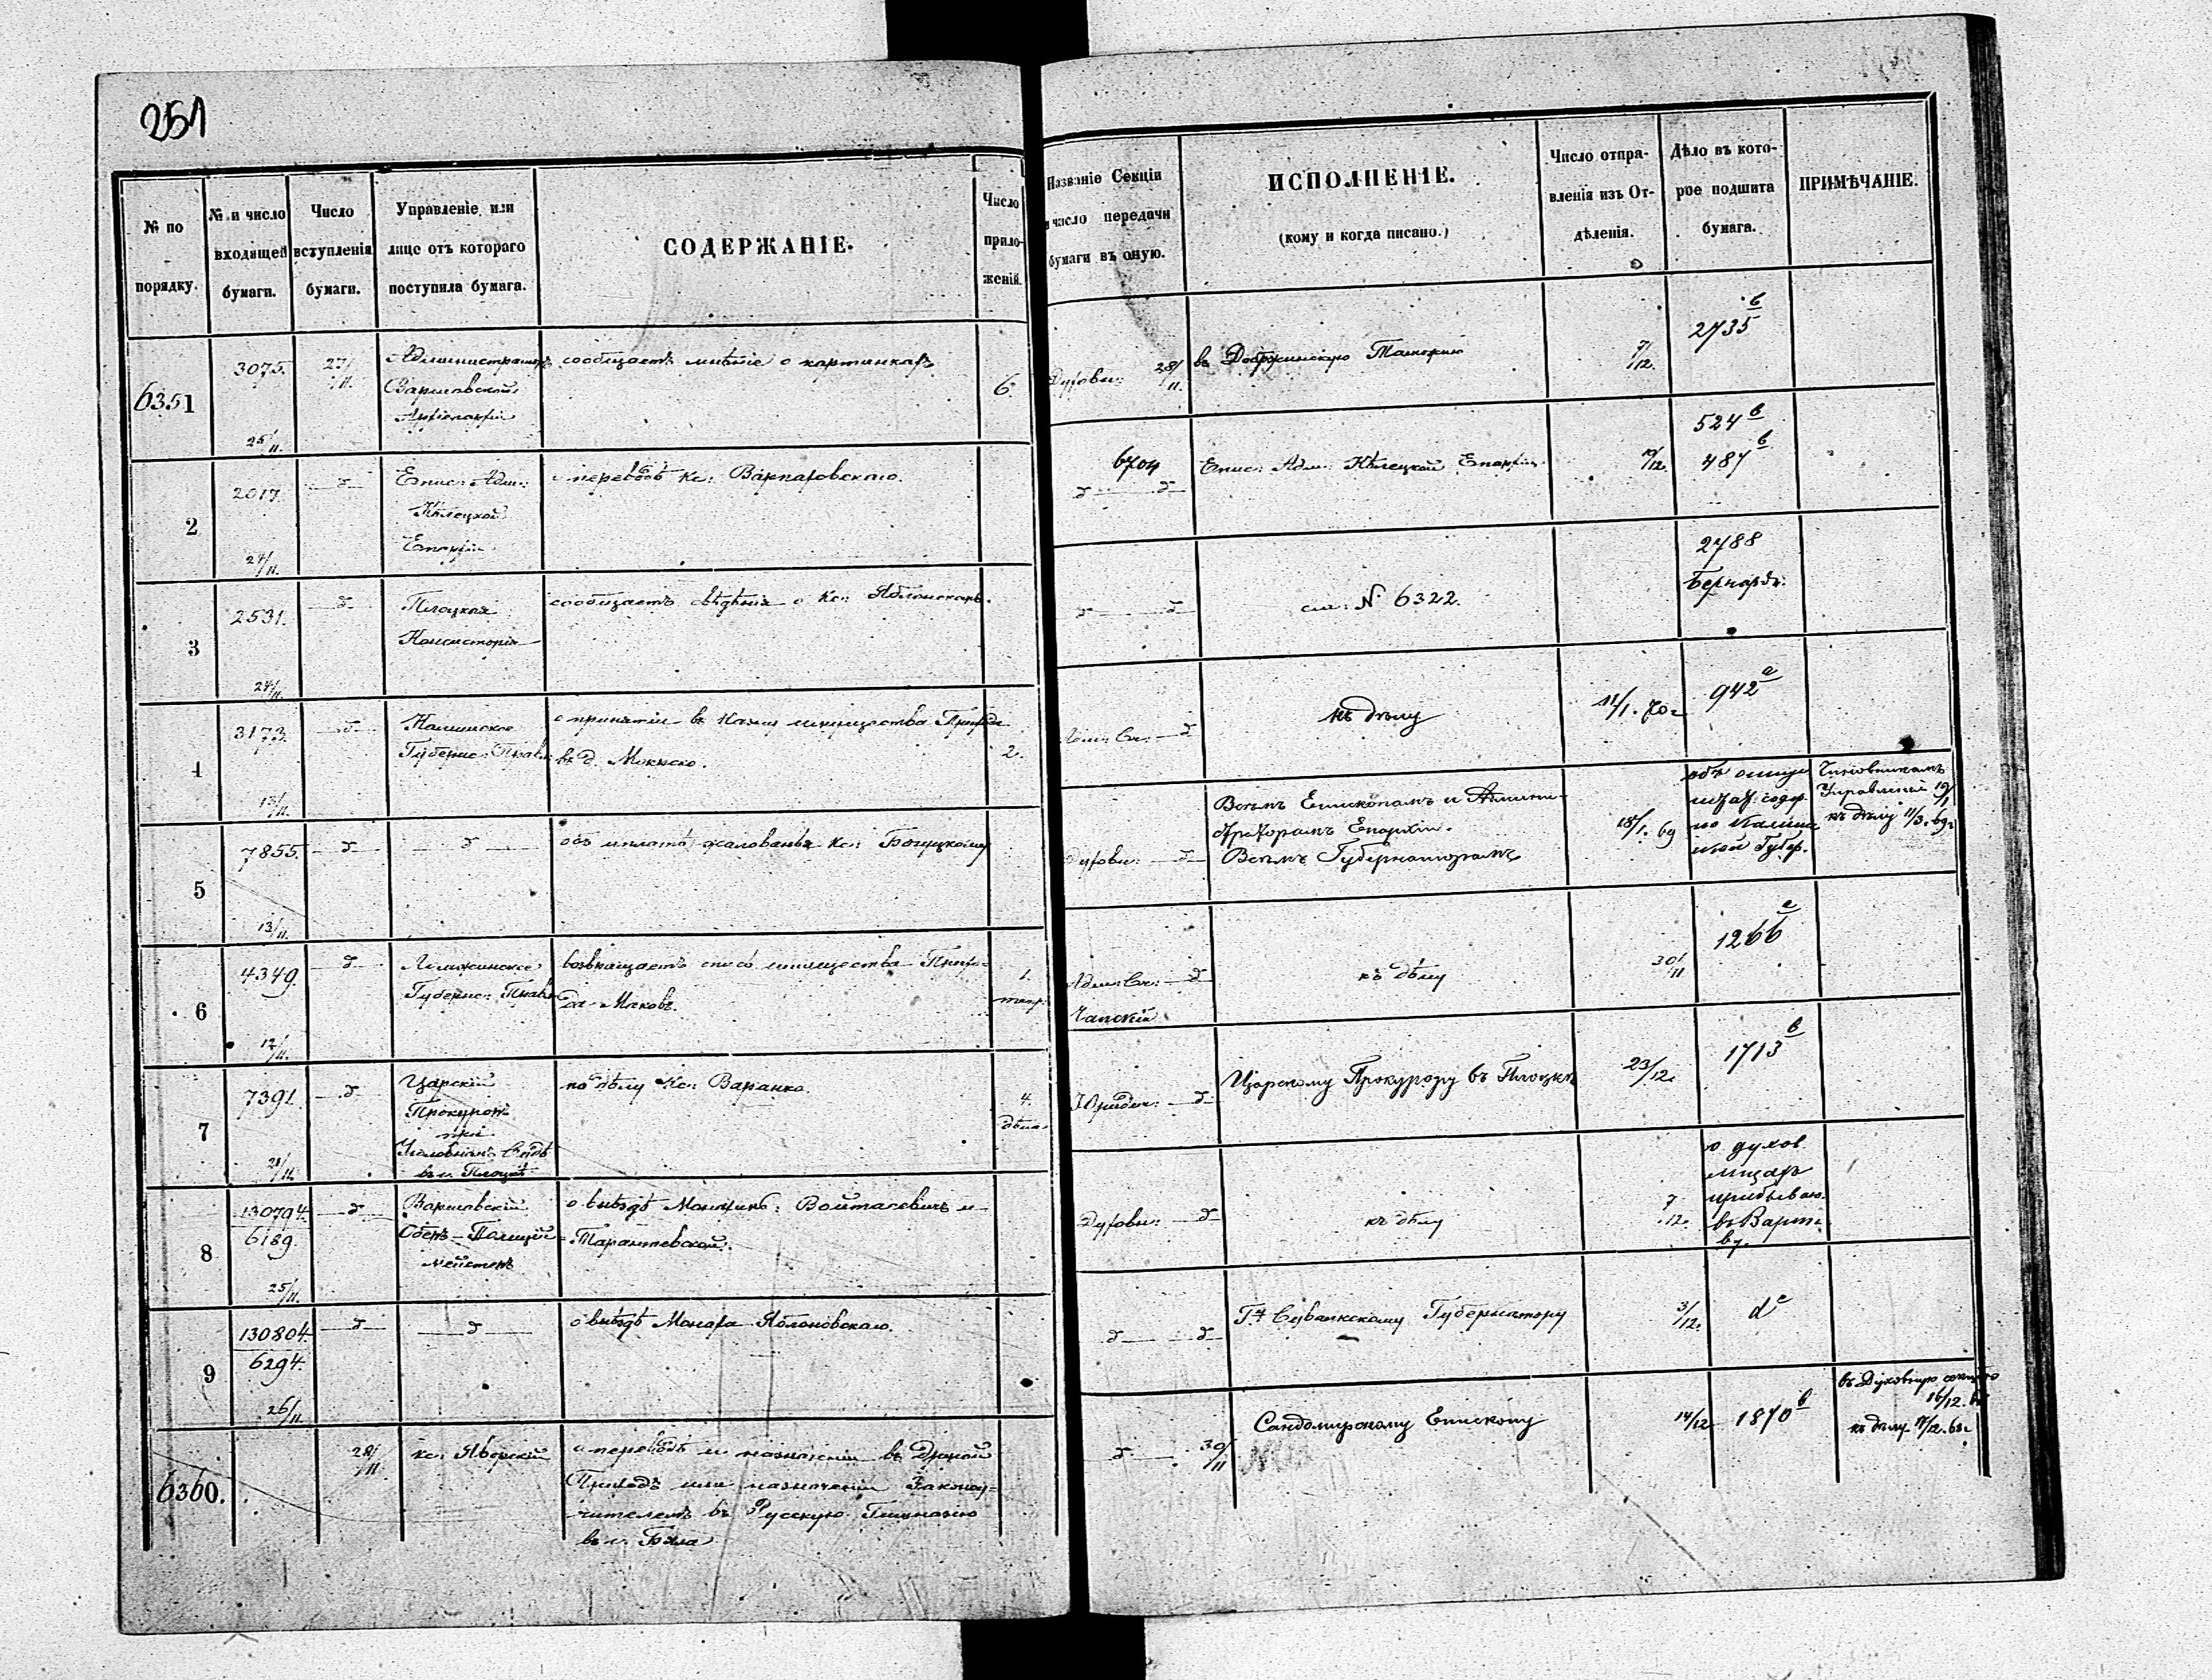 251
№ по порядку.
№ и число входящей бумаги.
Число вступленія бумаги.
Управленіе или лице отъ котораго поступила бумага.
СОДЕРЖАНІЕ.
Число приложеній.
Названіе Секціи и число передачи бумаги въ оную.
ИСПОЛНЕНІЕ.
(кому и когда писано.)
Число отправленія изъ Отдѣленія.
Дѣло въ которое подшита бумага.
ПРИМѢЧАНІЕ.
6351
3075.
25/11.
27/11.
Администраторъ
Варшавской
Архіепархіи
сообщаетъ мнѣніе о картинкахъ
6.
Духовн: 28/11.
въ Добржинскую Таможню
7/12.
2735 в
2
2017.
24/11.
д
Епис: Адм:
Кѣлецкой
Епархіи
о переводѣ Кс:
6704
д д
Епис: Адм: Кѣлецкой Епархіи
19/12.
524 в
487 в
3
2531.
24/11.
д
Плоцкая
Консисторія
сообщаетъ свѣдѣнія о Кс: Яблонскомъ.
д д
см: № 6322.
2788
Бернард:
4
3173.
13/11.
д
Калишское
Губернс: Правл:
о принятіи въ Казну имущества Прихода
въ д. Мокнско.
2.
д
къ дѣлу
11/1. 70 г
942 а
5
7855.
13/11.
д
д
объ уплатѣ жалованья Кс:
Духовн: д
Всѣмъ Епископамъ и Админи-
страторамъ Епархіи.
Всѣмъ Губернаторамъ
18/1. 69
содер.
по Калиш
ской Губер.
Чиновникамъ
Управленія 19/1
къ дѣлу 11/3. 69 г
6
4349.
12/11.
д
Ломжинское
Губернс: Правл:
возвращаетъ опись имущества Прихо-
да Маковъ.
1.
Адм: Сч: д
Чапскій
къ дѣлу
30/11
1266 а
7
7391.
21/11.
д
Царскій
Прокуроръ
при
Уголовномъ Судѣ
въ г. Плоцкѣ
по дѣлу Кс: Варанка.
4.
дѣла.
Юридич: д
Царскому Прокурору въ Плоцкѣ
23/12.
1713 в
8
130794.
6189.
25/11.
д
Варшавскій
Оберъ-Полицій-
мейстеръ
о выѣздѣ Монахинь: Войтасевичъ и
Духовн: д
къ дѣлу
7/12.
о духов
лицахъ
прибываю.
въ Варша
ву.
9
130804.
6294.
26/11.
д
д
о выѣздѣ Монаха Яблоновскаго.
д д
Гну Сувалкскому Губернатору
3/12.
6360.
28/11.
кс: Яворскій
о переводѣ и назначеніи въ Другой
Приходъ или назначеніи Законоу-
чителемъ въ Русскую Гимназію
въ г. Бяла
д 30/11
Сандомирскому Епископу
14/12
1870 в
въ Духовную секцію
16/12.
къ дѣлу 17/12. 68 г